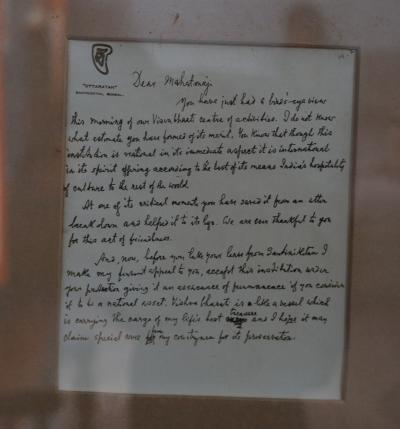 "UTTARAYAN"
SANTINIKETAN, BENGAL.
Dear Mahatmaji
You have just had a bird's-eye view
this morning of our Visvabharati centre of activities. I do not know
what estimate you have formed of its merit. You know that though this
institution is national in its immediate aspect it is international
in its spirit offering according to the best of its means India's hospitality
of culture to the rest of the world.
At one of its critical moments you have saved it from an utter
break down and helped it to its legs. We are ever thankful to you
for this act of friendliness.
And, now, before you take your leave from Santiniketan I
make my fervent appeal to you, accept this institution under
your protection giving it an assurance of permanence if you consider
it to be a national asset. Visvabharati is like a vessel which
is carrying the cargo of my life's best treasure and I hope it may
claim special care from my countrymen for its preservation.